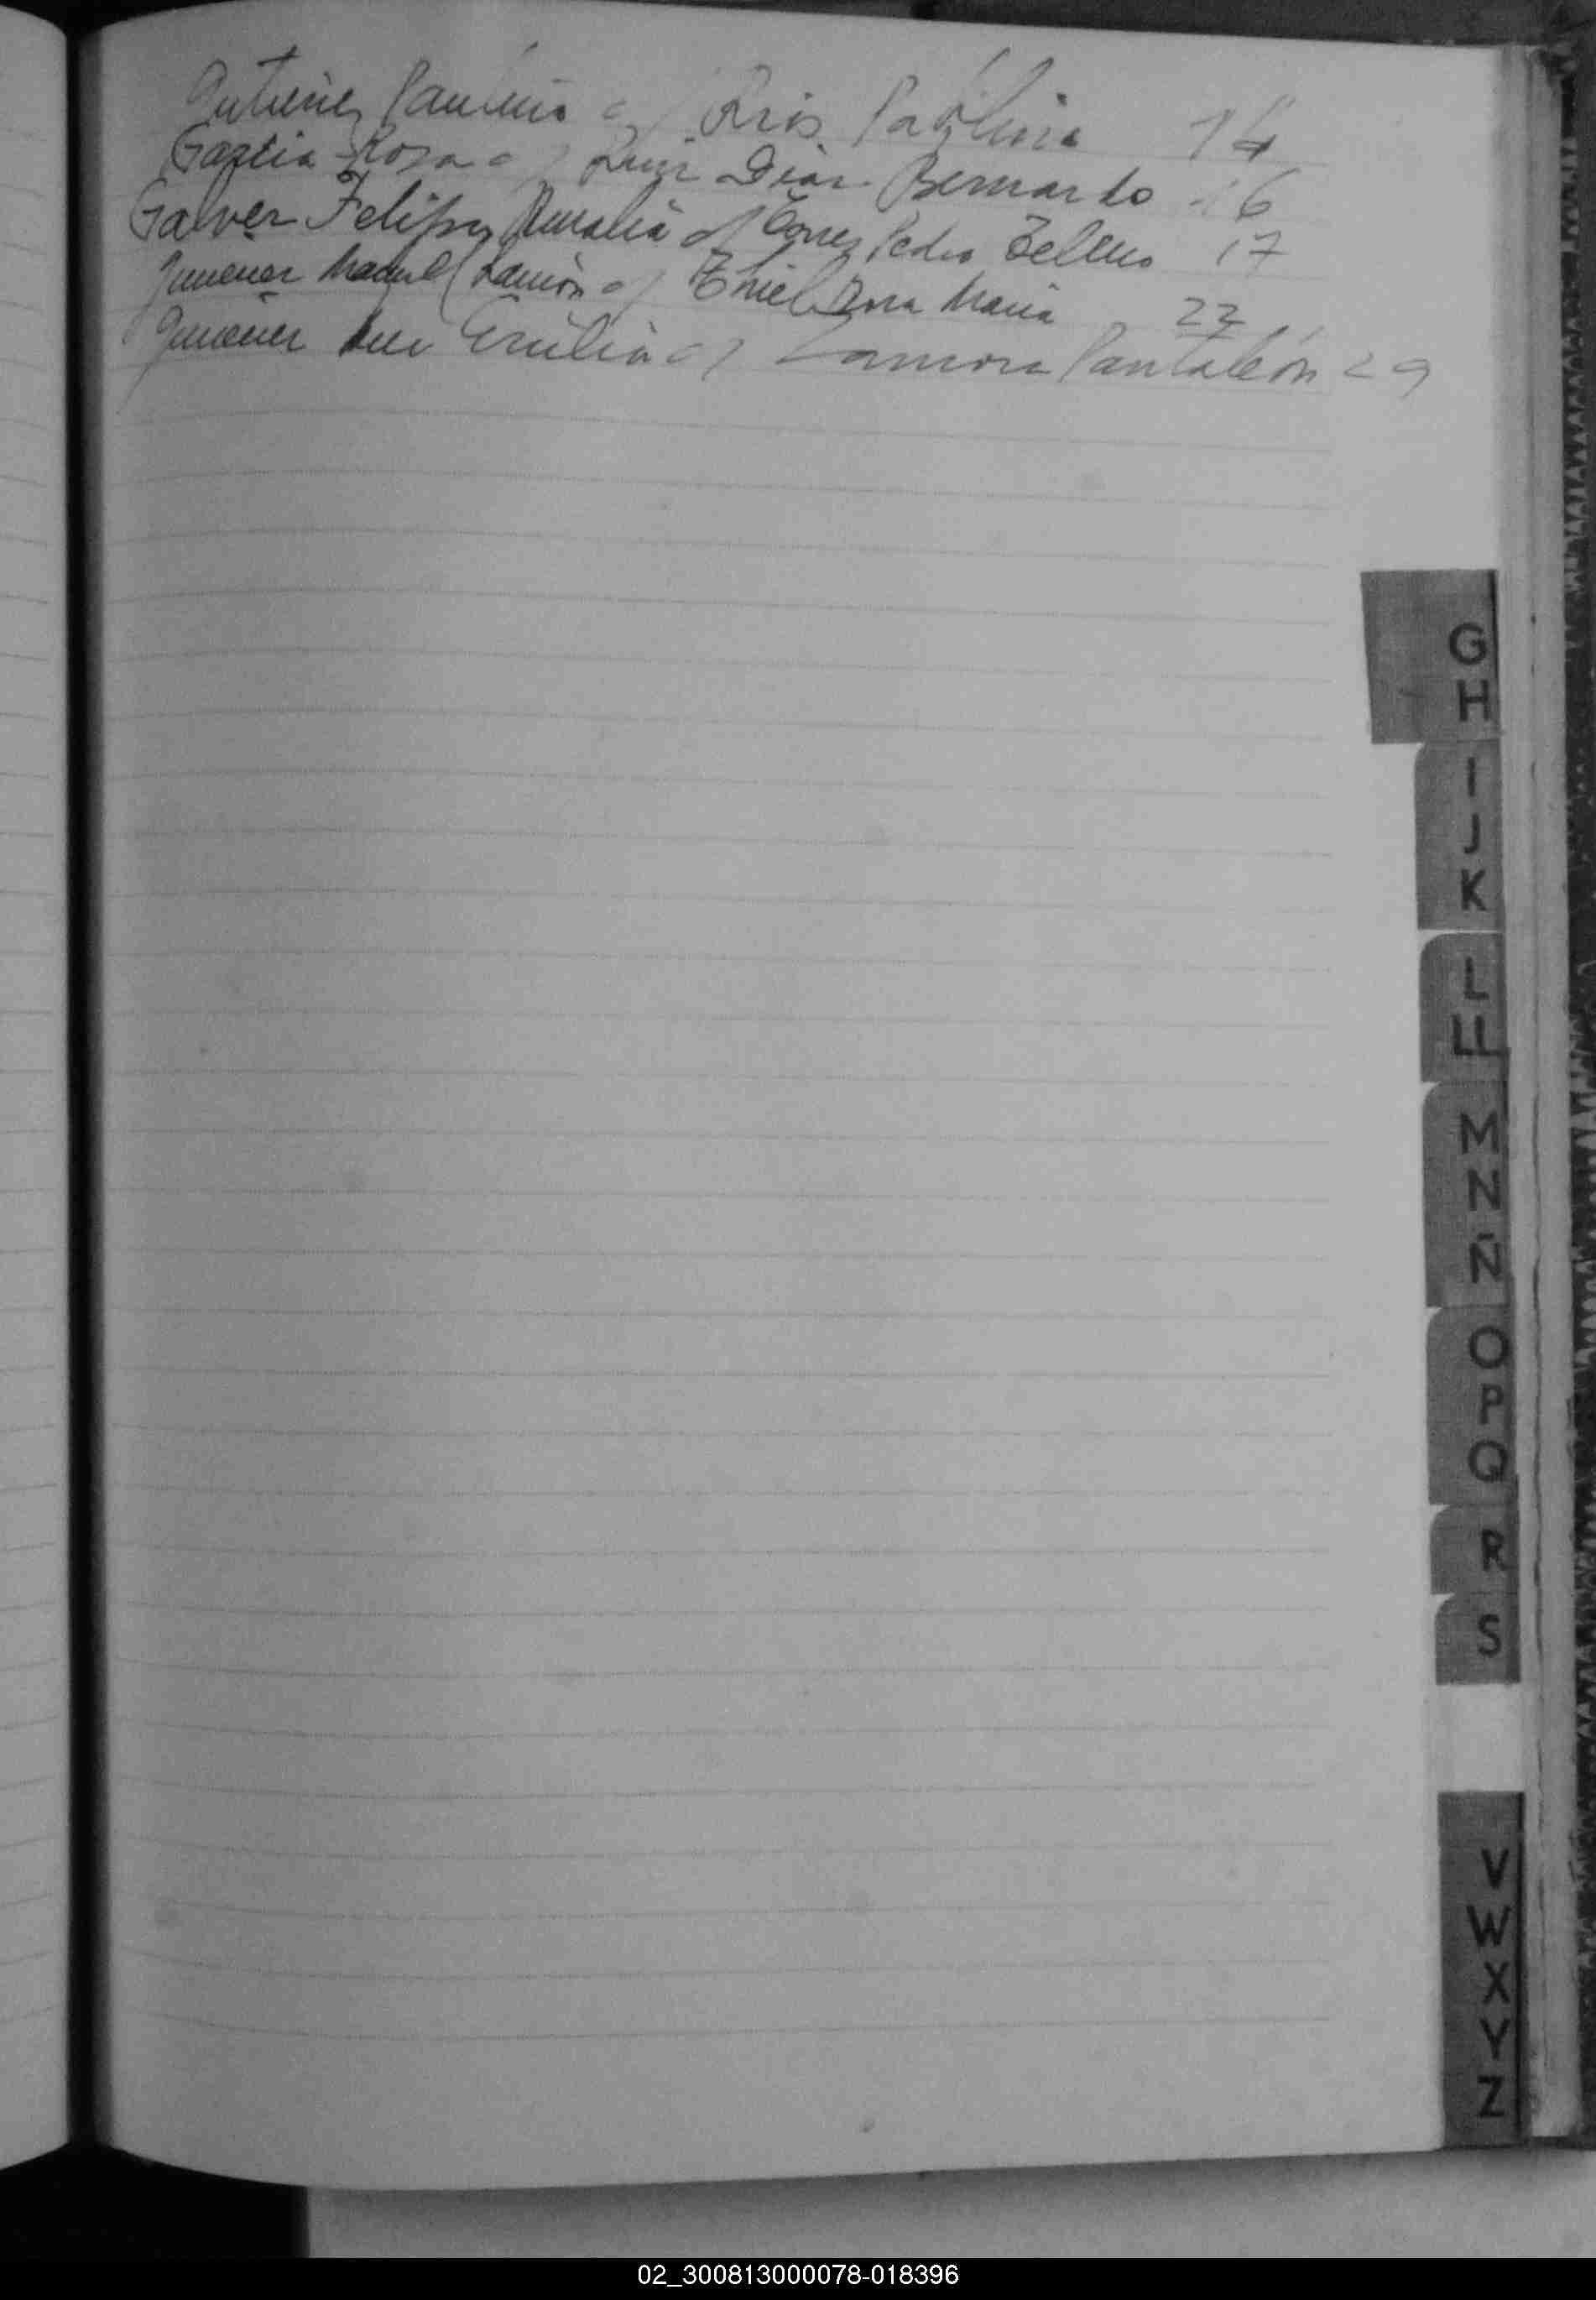 Gutierrez Paulino c/ Rios Paulina 14
Garcia Rosa c/ Ruiz Diaz Bernardo 16
Galvez Felipa Amalia c/ Torrez Pedro Zelleno 17
Jimenez Manuel Ramón c/ Thiel Ana Maria 22
Jimenez Emilia c/ Zamora Pantaleón 29
G
H
I
J
K
L
Ll
M
N
Ñ
O
P
Q
R
S
V
W
X
Y
Z
02_300813000078-018396